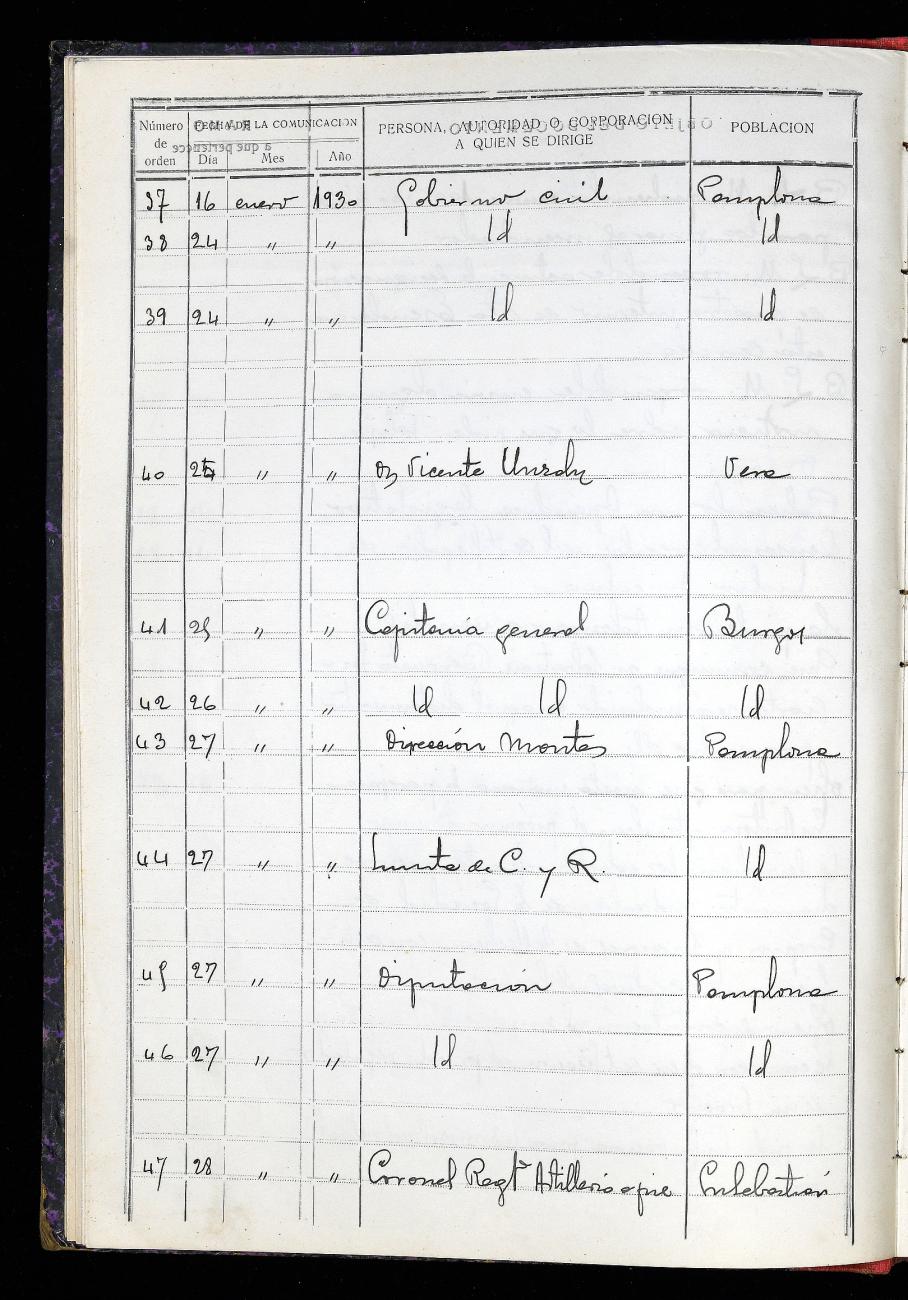 Número de orden FECHA DE LA COMUNICACION Día Mes Año PERSONA, AUTORIDAD O CORPORACION A QUIEN SE DIRIGE POBLACION
37 16 enero 1930 Gobierno civil Pamplona
38 24 " " Id Id
39 24 " " Id Id
40 25 " " Dn Vicente Vera
41 25 " " Capitanía general Burgos
42 26 " " Id Id Id
43 27 " " Dirección Montes Pamplona
44 27 " " Junta de C. y R. Id
45 27 " " Diputación Pamplona
46 27 " " Id Id
47 28 " " Coronel Regto Artilleria a pie